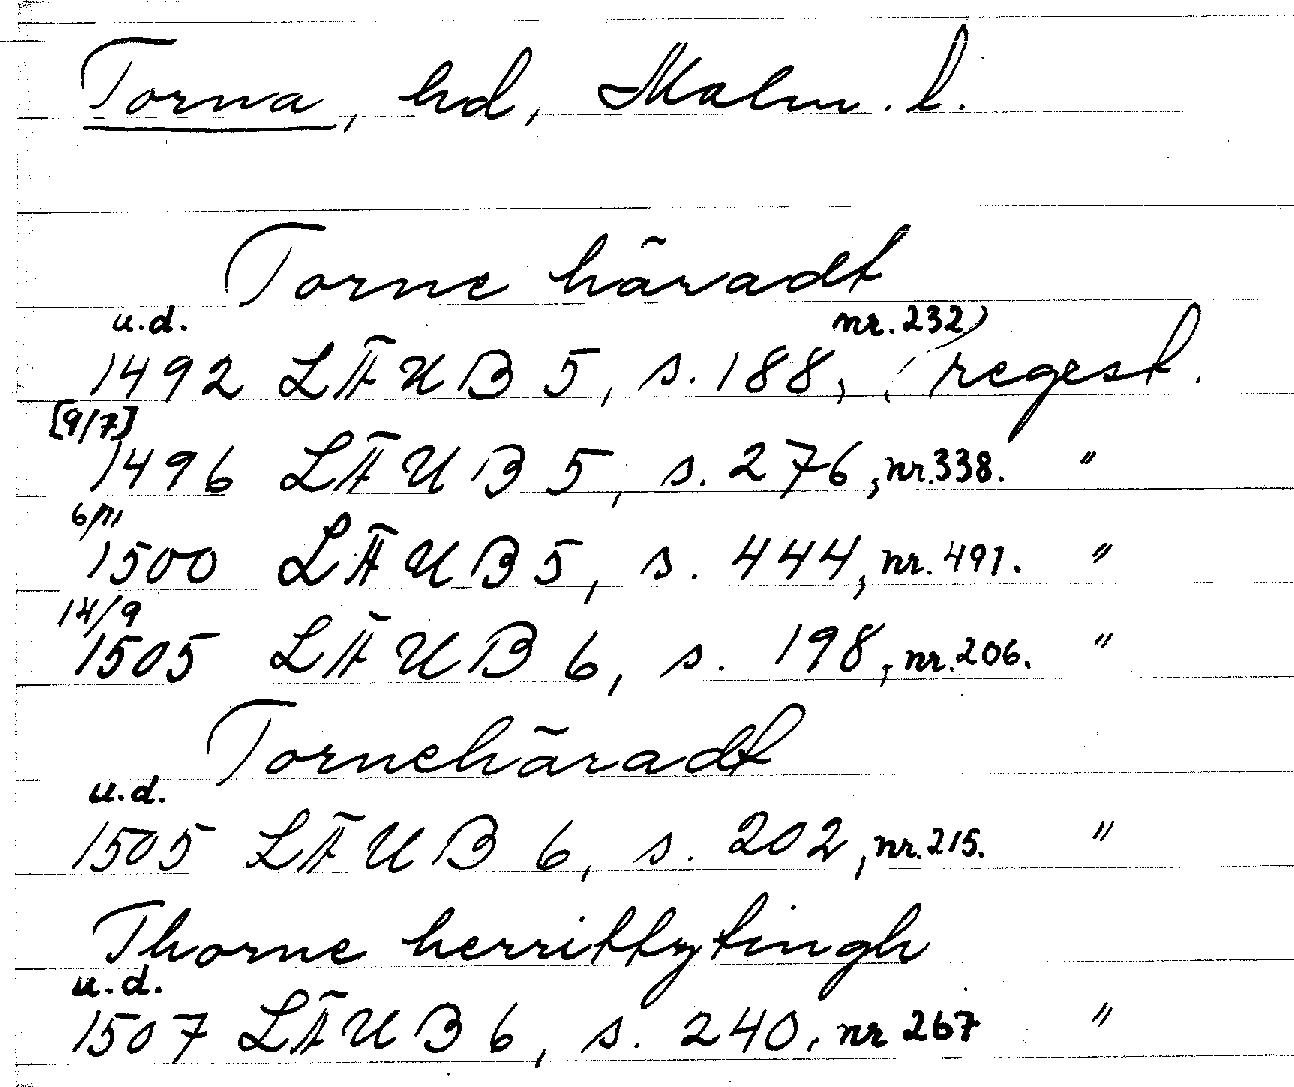 Torna, hd, Malm. l.
Torne häradt
u.d. nr. 232)
1492 LÄUB 5, s. 188, (regest.
[9/7]
1496 LÄUB 5, s. 276, nr. 338. "
6/11
1500 LÄUB 5, s. 444, nr. 491. "
14/9
1505 LÄUB 6, s. 198, nr. 206. "
Tornehäradt
u.d.
1505 LÄUB 6, s. 202, nr. 215. "
Thorne herrittztingh
u.d.
1507 LÄUB 6, s. 240, nr 267 "